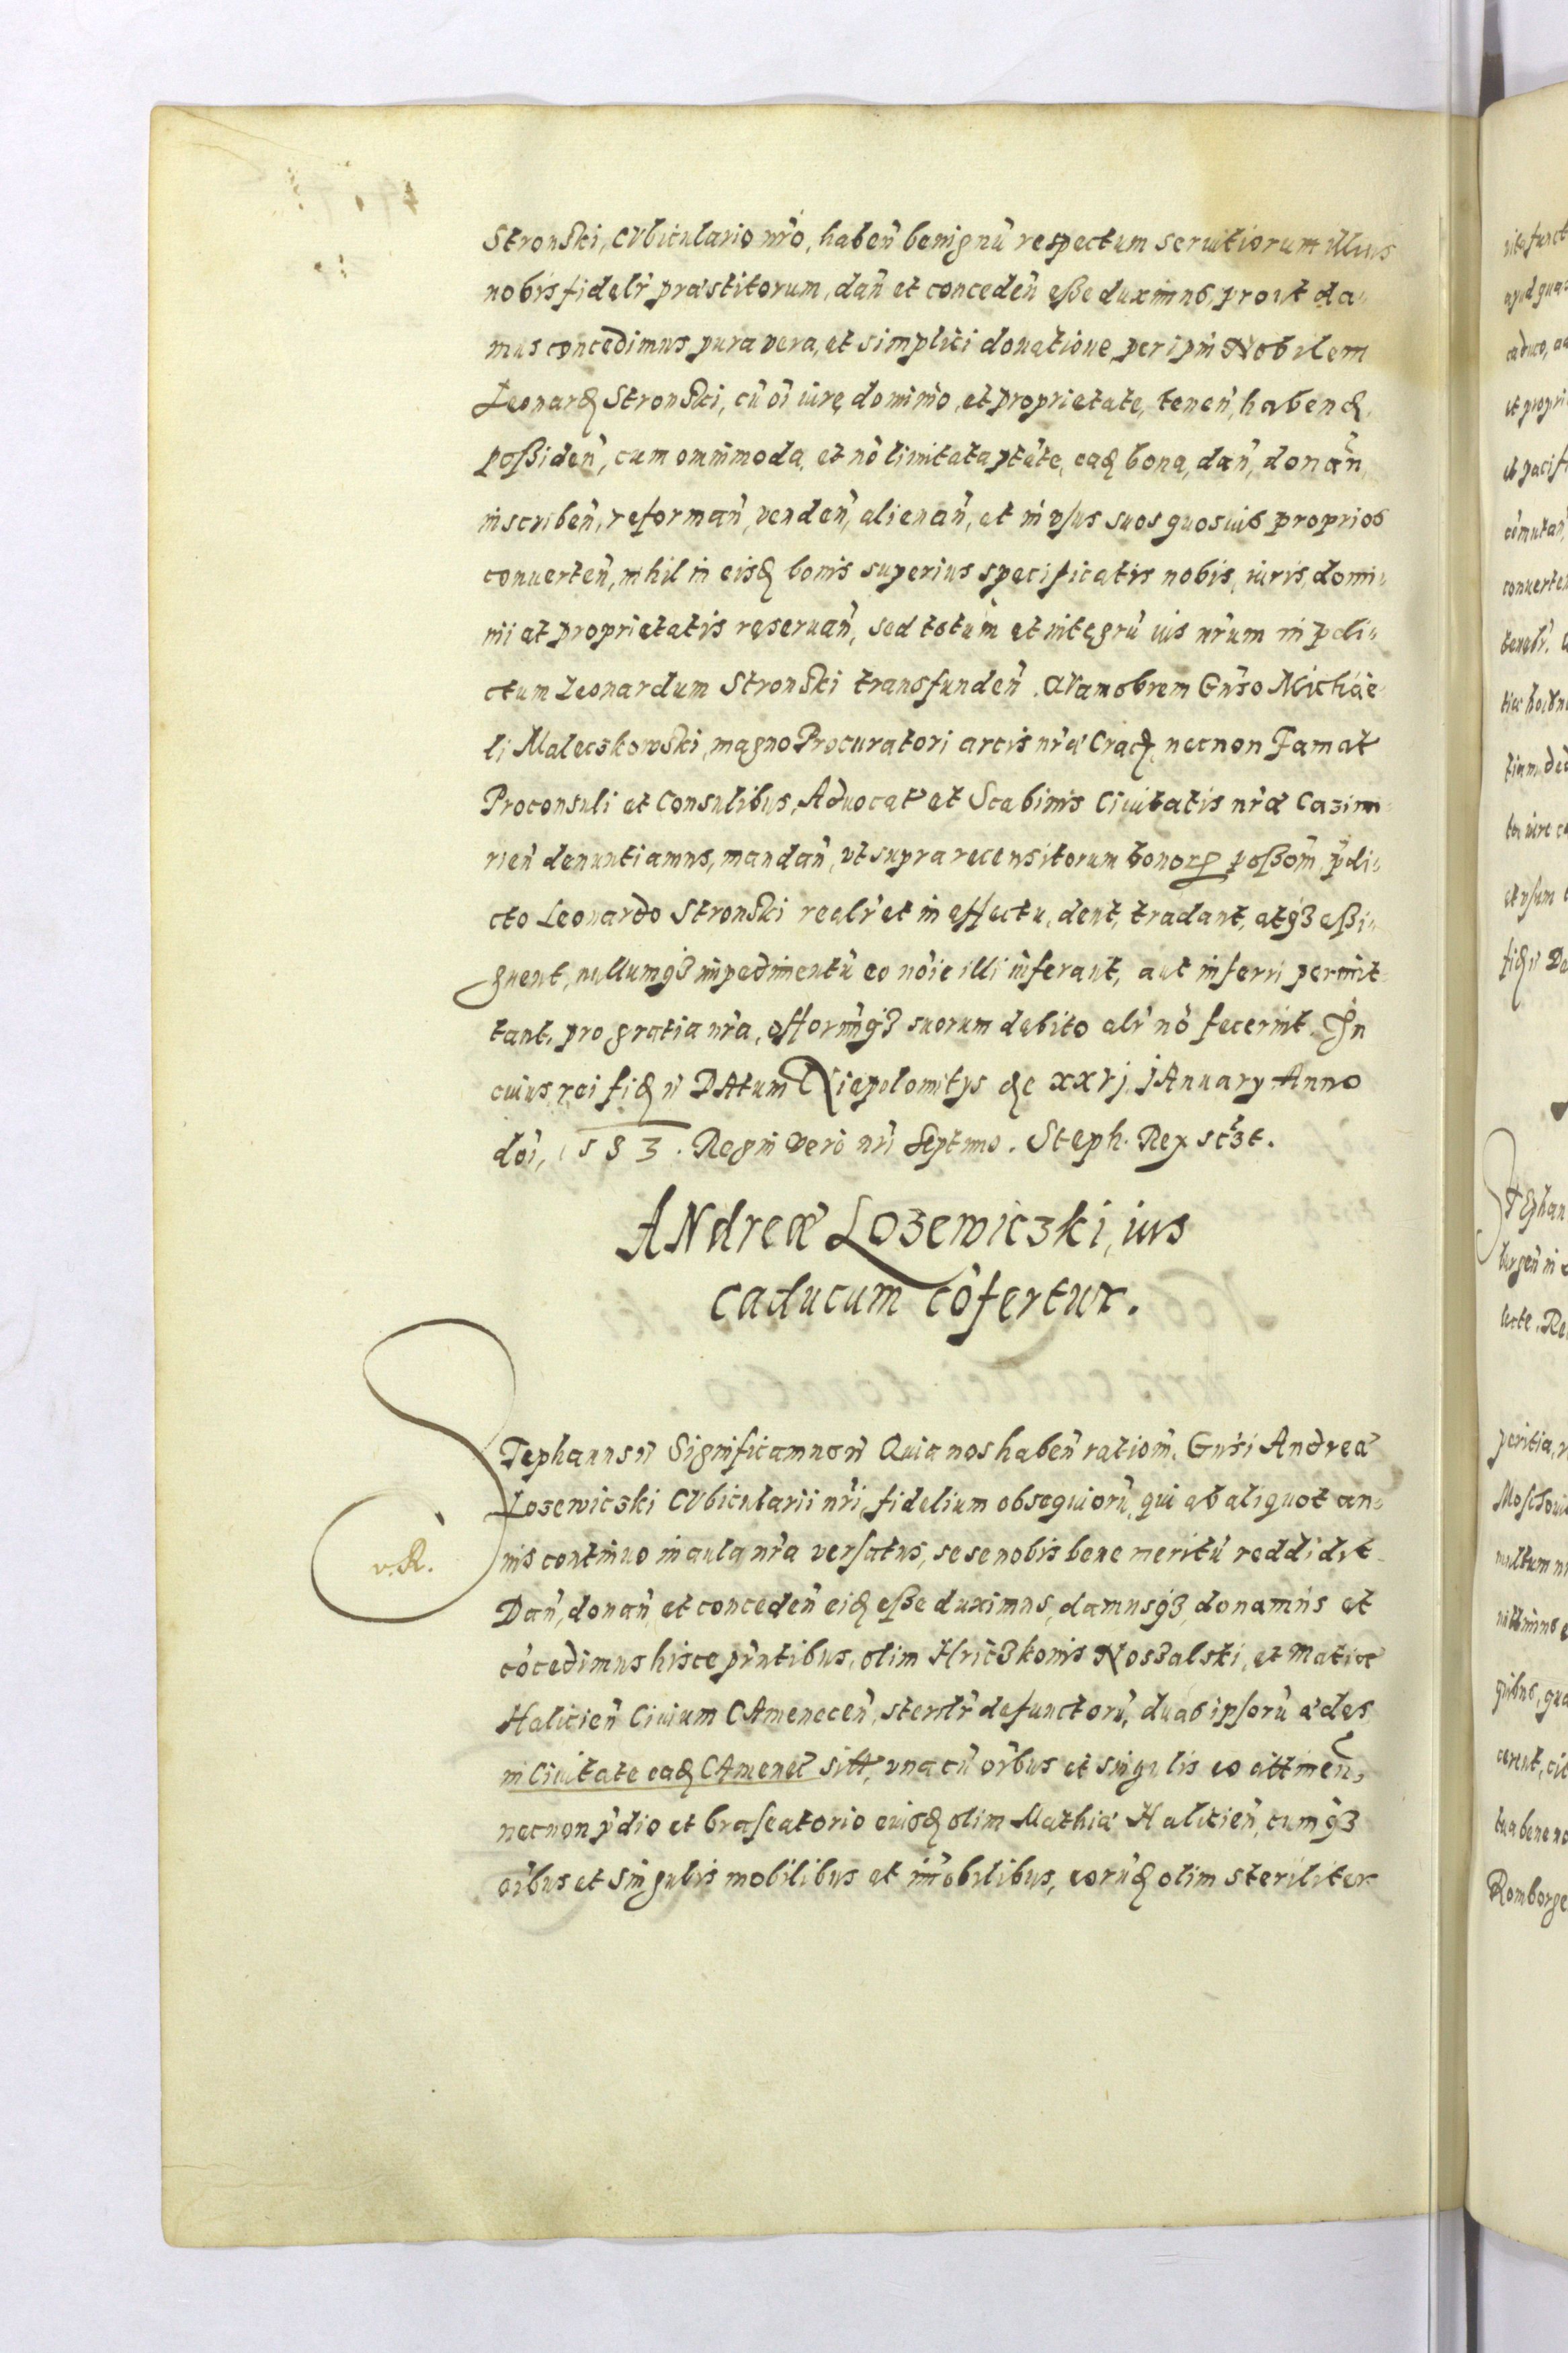 Stronski, Cubiculario nr̃o, habeñ benignũ respectum seruitiorum illius
nobis fidelr̃ præstitorum, dañ et concedeñ eße duximus, prout da-
mus concedimus pura vera, et simplici donatione, per ipm̃ Nobilem
Leonard Stronski, cũ oĩ iure dominio, et proprietate, teneñ, habend,
poßideñ, cum omnimoda, et nõ limitata ptãte, ead bona, dañ, donañ,
inscribeñ, reformañ, vendeñ, alienañ, et in vsus suos quosuis proprios
conuerteñ, nihil in eisd bonis superius specificatis nobis, iuris, domi-
nii et proprietatis reseruañ, sed totum et integrũ ius nr̃um in p̃di-
ctum Leonardum Stronski transfundeñ. Quamobrem Gnr̃so Michae-
li Maleczkowski, magno Procuratori arcis nr̃æ Crac, necnon Famat
Proconsuli et Consulibus, Aduocat et Scabinis Ciuitatis nr̃æ Cazimi-
rieñ denuntiamus, mandañ, vt supra recensitorum bonor poßom̃ p̃di-
cto Leonardo Stronski realr̃ et in effectu, dent, tradant, atq3 aßi-
gnent, nullumq3 impedimentũ eo noĩe illi inferant, aut inferri permit-
tant, pro gratia nr̃a, offorumq3 suorum debito alr̃ nõ fecerint. In
cuius rei fid ñ Datum Niepolomitys die xxvj januarij Anno
doĩ, 1583. Regni vero nr̃i Septimo. Steph. Rex sc̃3t.
Andreæ Lozewiczki, ius
caducum cõfertur.
Stephanus ñ Significamus ñ Quia nos habeñ ratiom̃, Gnr̃si Andreæ
Lozewiczki Cubicularii nr̃i, fidelium obsequiorũ, qui ab aliquot an-
nis continuo in aula nr̃a versatus, sese nobis bene meritũ reddidit.
v. R.
Dañ, donañ, et concedeñ eid eße duximus, damusq3, donamus et
cõcedimus hisce pr̃ntibus, olim Hriczkonis Noszalski, et Matiæ
Halicieñ Ciuium Cameneceñ, sterilr̃ defunctorũ, duas ipsorũ ædes
in Ciuitate ead Camenec sitt, vna cũ oĩbus et singulis eo attineñ,
necnon p̃dio et braseatorio eiusd olim Mathiæ Halicieñ, cumq3
oĩbus et singulis mobilibus et im̃obilibus, eorũd olim steriliter